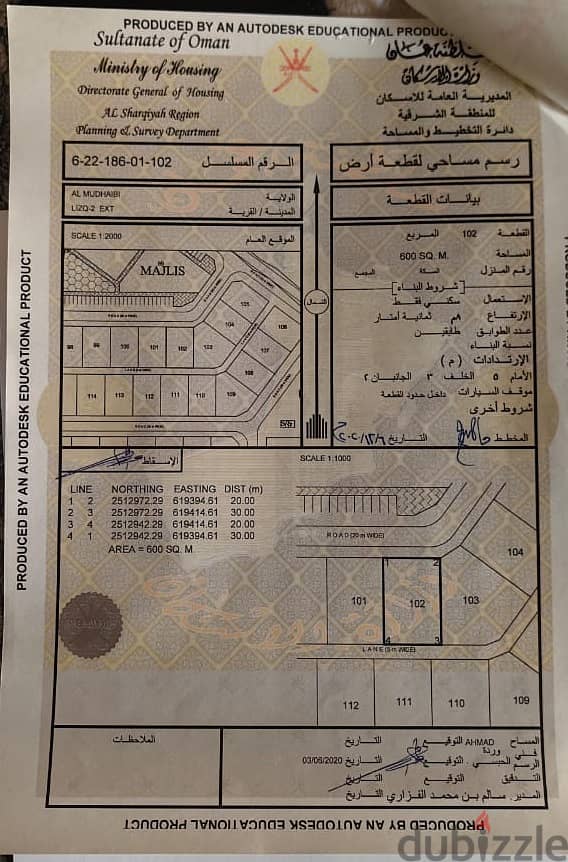 PRODUCED BY AN AUTODESK EDUCATIONAL
Sultanate of Oman
سلطنة عمان
Ministry of Housing
وزارة الإسكان
Directorate General of Housing
المديرية العامة للاسكان
AL Sharqiyah Region
للمنطقة الشرقية
Planning & Survey Department
دائرة التخطيط والمساحة
6-22-186-01-102
الرقم المسلسل
رسم مساحي لقطعة أرض
AL MUDHAIBI
الولاية
LIZQ-2 EXT
المدينة / القرية
بيانات القطعة
SCALE 1:2000
الموقع العام
MAJLIS
105
104
106
107
98
99
100
101
102
103
108
109
114
113
112
111
110
الشمال
القطعة 102 المربع
المساحة 600 SQ. M.
رقم المنزل السكة المجمع
[شروط البناء]
الإستعمال سكني فقط
الإرتفاع ٨م ثمانية أمتار
عدد الطوابق طابقين
نسبة البناء
الإرتدادات (م)
الأمام ٥ الخلف ٣ الجانبان ٢
موقف السيارات داخل حدود القطعة
شروط أخرى
المخطط
التاريخ
الإسقاط
LINE NORTHING EASTING DIST (m)
1 2 2512972.29 619394.61 20.00
2 3 2512972.29 619414.61 30.00
3 4 2512942.29 619414.61 20.00
4 1 2512942.29 619394.61 30.00
AREA = 600 SQ. M.
SCALE 1:1000
ROAD (20m WIDE)
104
1
2
101
102
103
4
3
LANE (5m WIDE)
112
111
110
109
الملاحظات
المساح AHMAD التوقيع التاريخ
فني الرسم وردة الحبسي التوقيع التاريخ 03/06/2020
التدقيق التوقيع التاريخ
المدير. سالم بن محمد الفزاري التاريخ
PRODUCED BY AN AUTODESK EDUCATIONAL PRODUCT
PRODUCED BY AN AUTODESK EDUCATIONAL PRODUCT
dubizzle